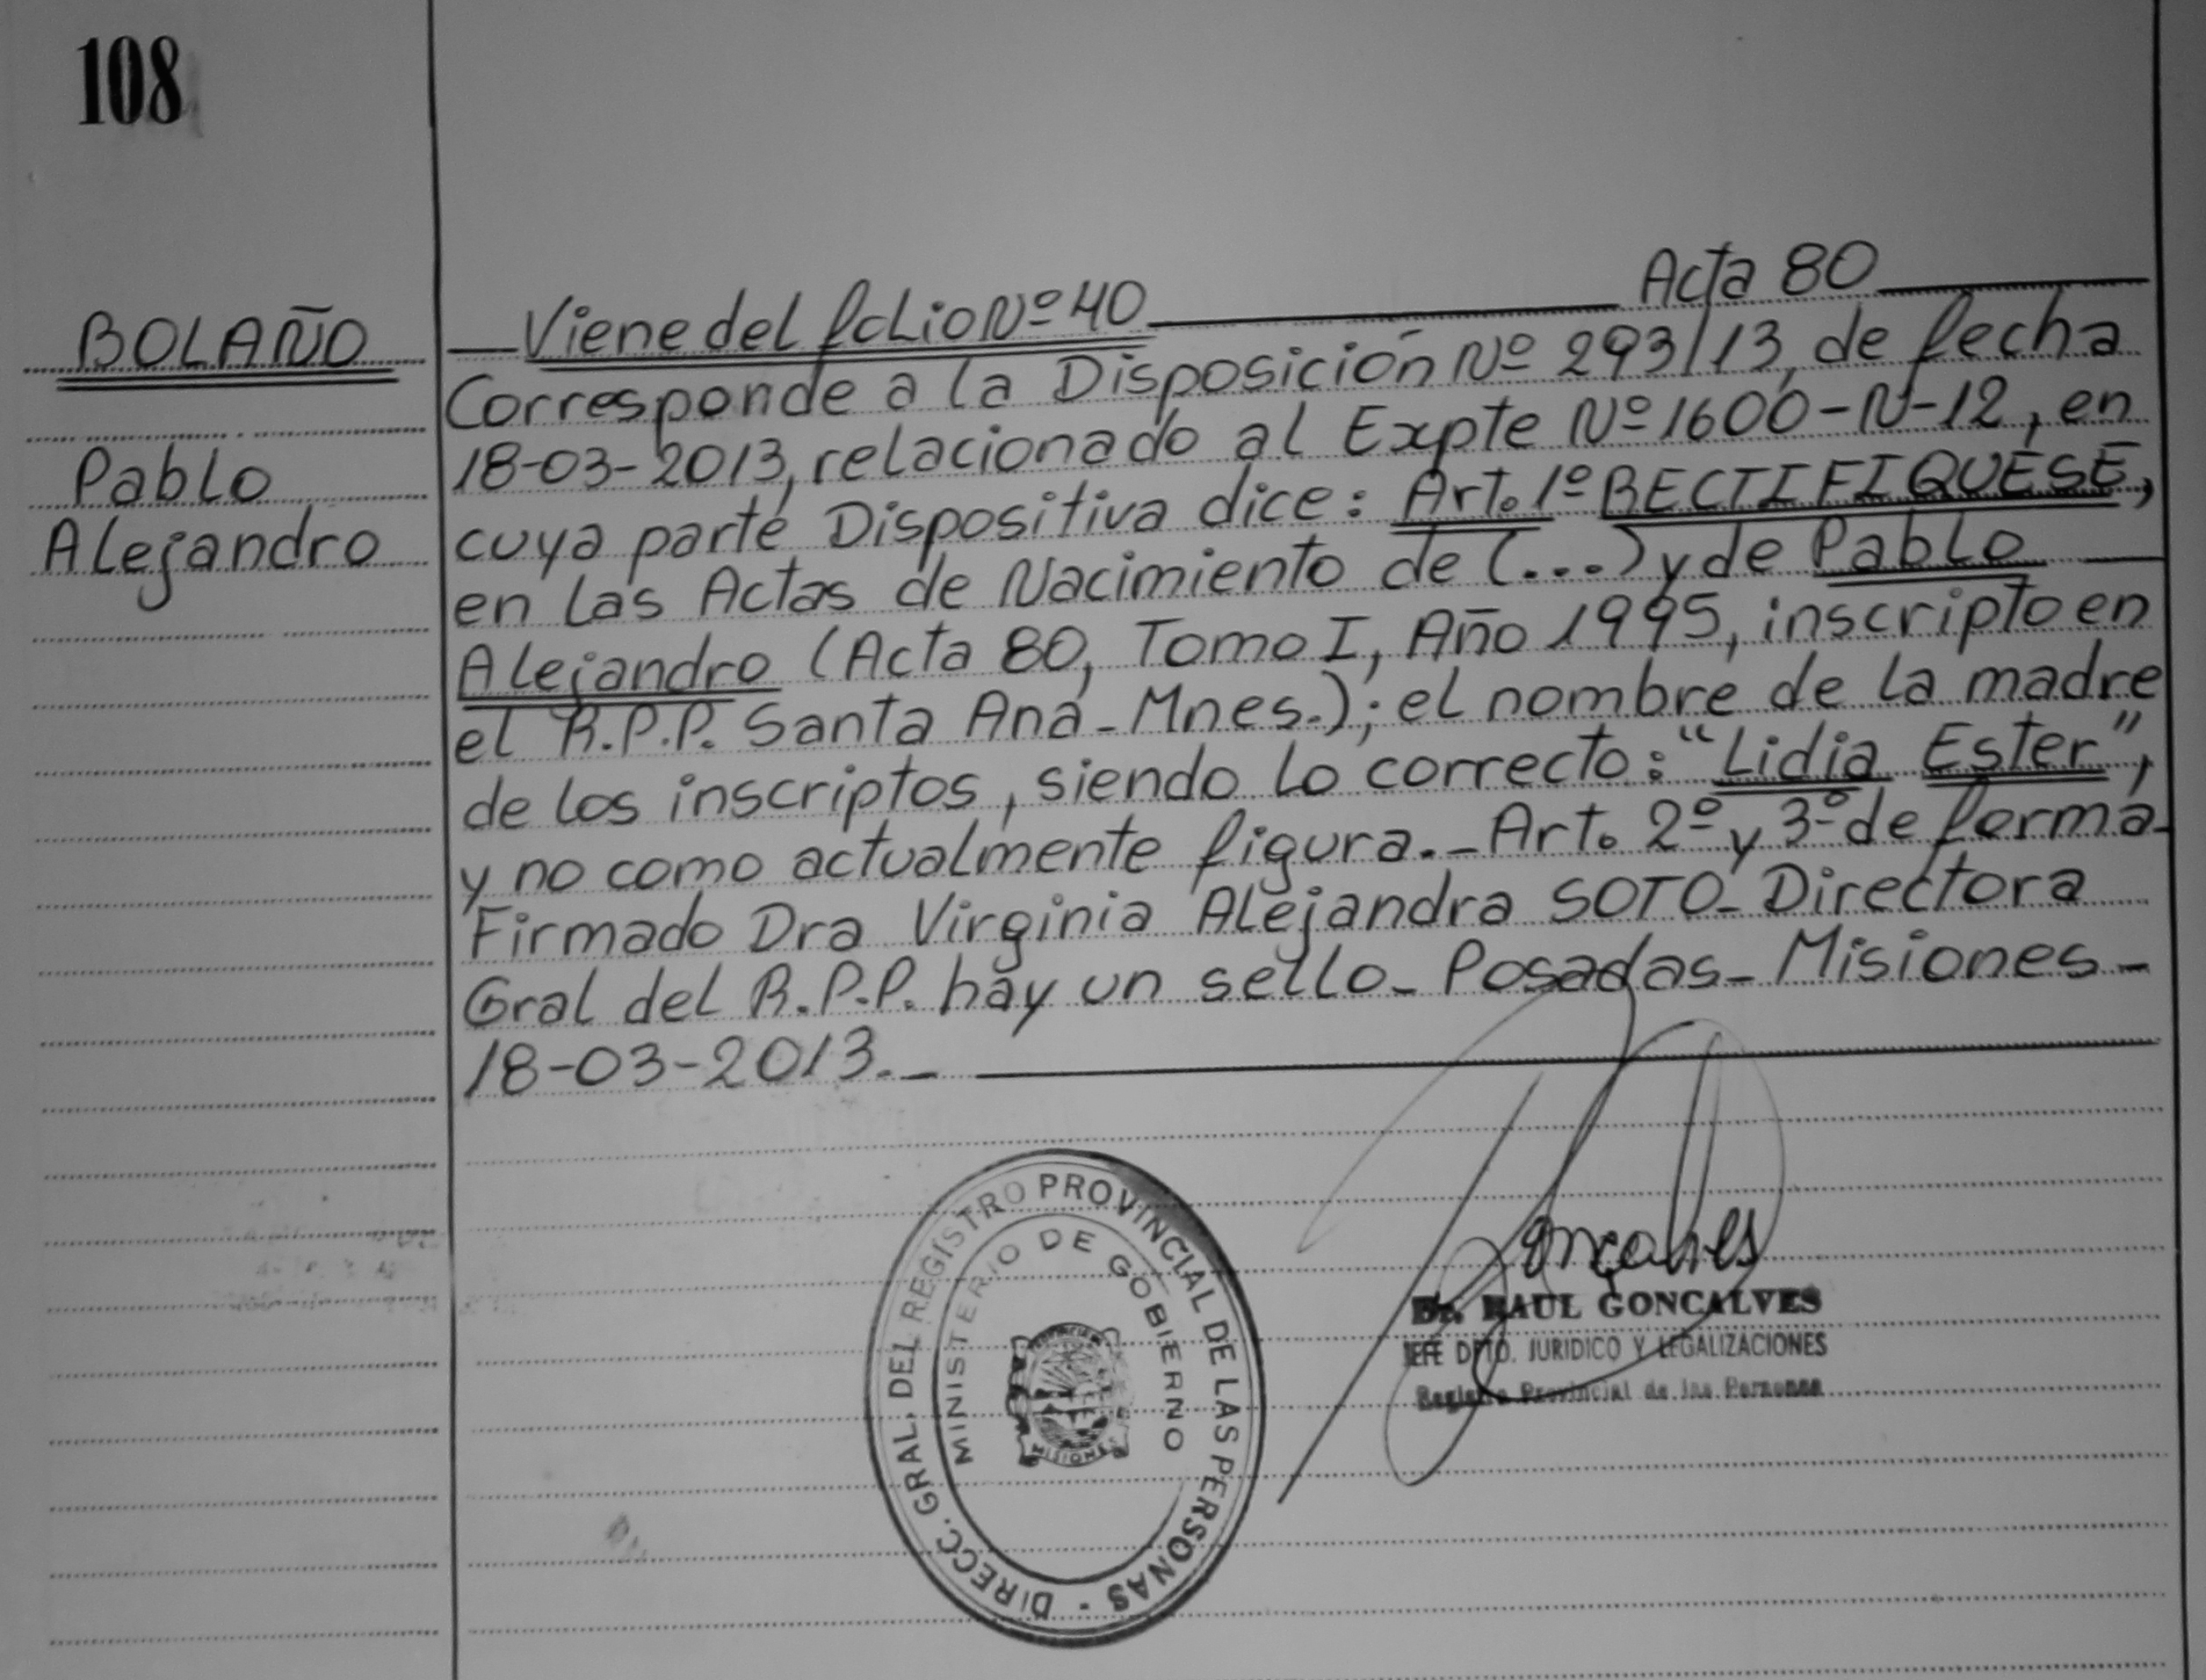 108
BOLAÑO
Pablo
Alejandro
Viene del folio Nº 40 Acta 80
Corresponde a la Disposición Nº 293/13, de fecha
18-03-2013, relacionado al Expte Nº 1600-N-12, en
cuya parte Dispositiva dice: Art. 1º RECTIFIQUESE,
en las Actas de Nacimiento de (...) y de Pablo
Alejandro (Acta 80, Tomo I, Año 1995, inscripto en
el R.P.P. Santa Ana - Mnes.); el nombre de la madre
de los inscriptos, siendo lo correcto: "Lidia Ester",
y no como actualmente figura._ Art. 2º y 3º de forma-
Firmado Dra Virginia Alejandra SOTO_ Directora
Gral del R.P.P. hay un sello_ Posadas_ Misiones_
18-03-2013._
DIRECC. GRAL. DEL REGISTRO PROVINCIAL DE LAS PERSONAS -
MINISTERIO DE GOBIERNO
MISIONES
Gonçalves
Dr. RAUL GONCALVES
JEFE DPTO. JURIDICO Y LEGALIZACIONES
Registro Provincial de las Personas